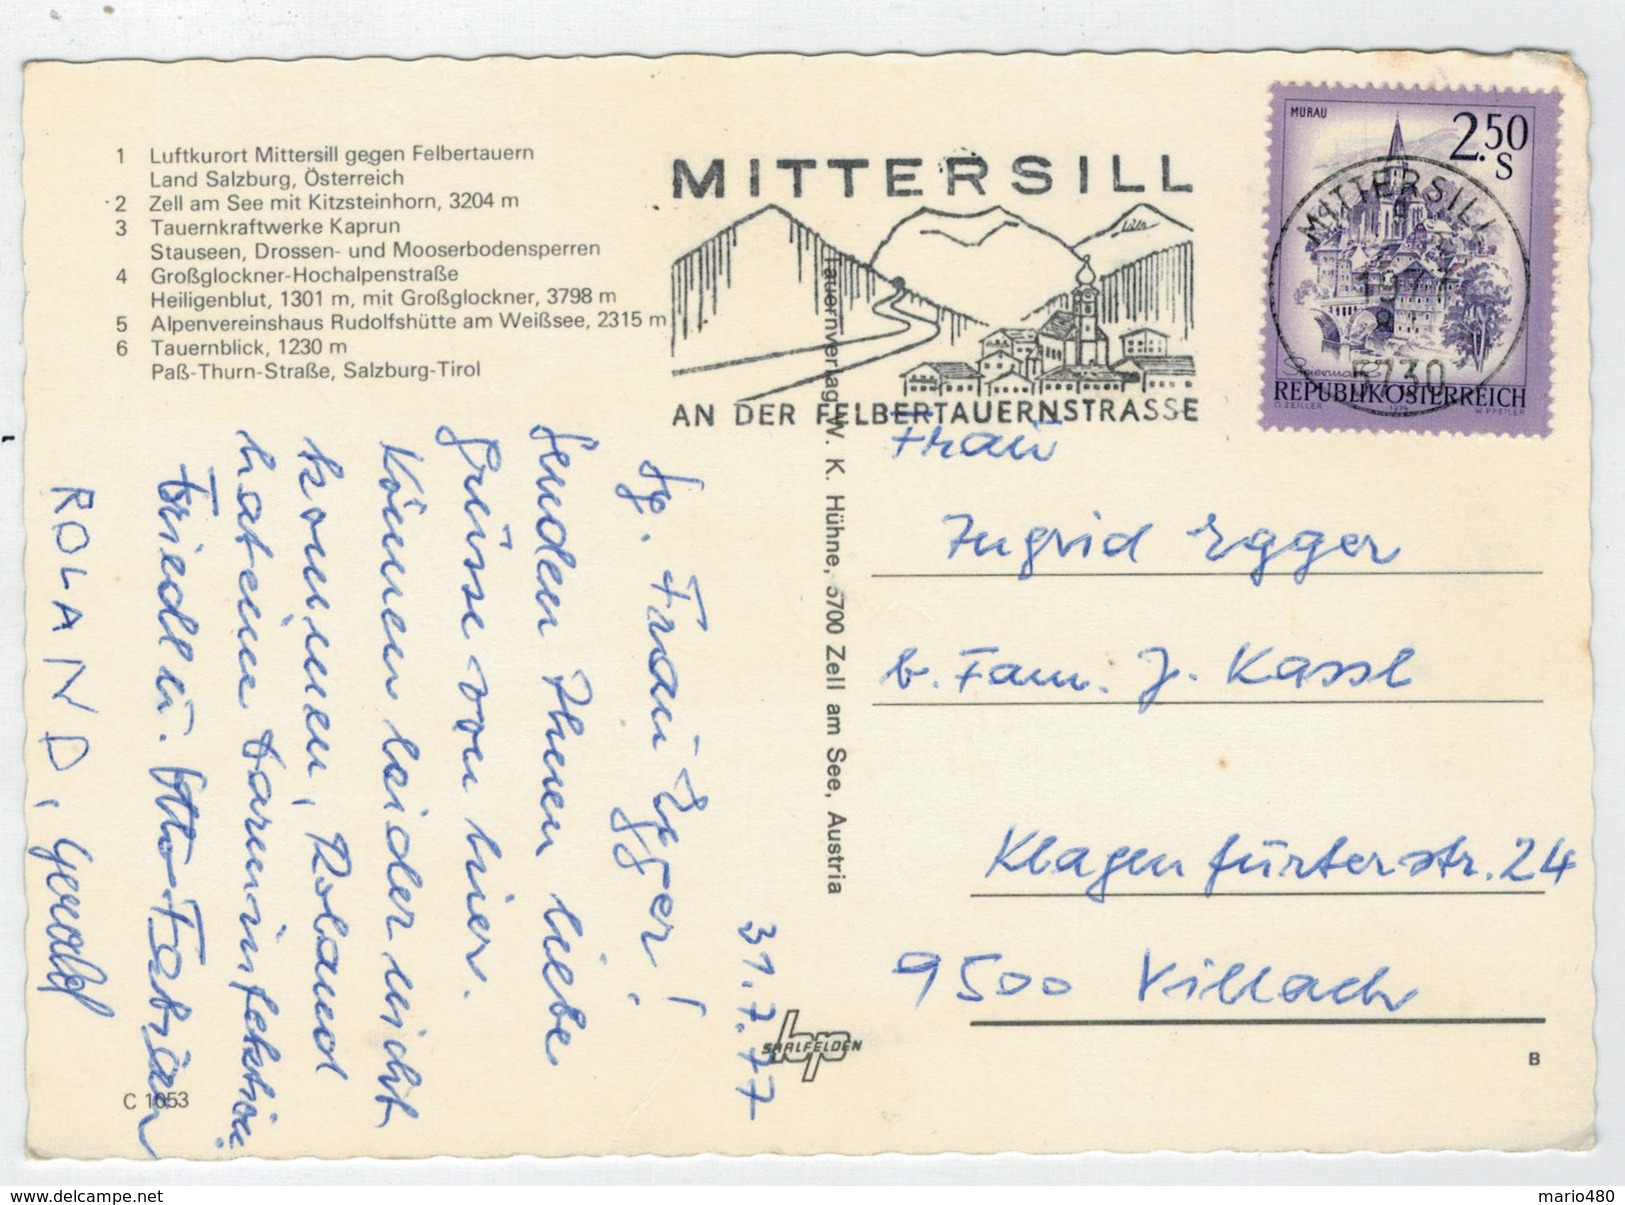 1 Luftkurort Mittersill gegen Felbertauern
Land Salzburg, Österreich
2 Zell am See mit Kitzsteinhorn, 3204 m
3 Tauernkraftwerke Kaprun
Stauseen, Drossen- und Mooserbodensperren
4 Großglockner-Hochalpenstraße
Heiligenblut, 1301 m, mit Großglockner, 3798 m
5 Alpenvereinshaus Rudolfshütte am Weißsee, 2315 m
6 Tauernblick, 1230 m
Paß-Thurn-Straße, Salzburg-Tirol
MITTERSILL
AN DER FELBERTAUERNSTRASSE
MURAU
2.50
S
Steiermark
REPUBLIK ÖSTERREICH
O. ZEILLER 1974 W. PFEILER
MITTERSILL
5730
31.7.77
Sg. Frau Egger!
Senden Ihnen liebe
Grüsse von hier.
Können leider nicht
kommen, Roland
hat eine Darminfektion
Friedl u. Otto Fabian
ROLAND, Gerald
Tauernverlag W. K. Hühne, 5700 Zell am See, Austria
Frau
Ingrid Egger
b. Fam. J. Kassl
Klagenfurterstr. 24
9500 Villach
hp
SAALFELDEN
C 1053
B
mario480